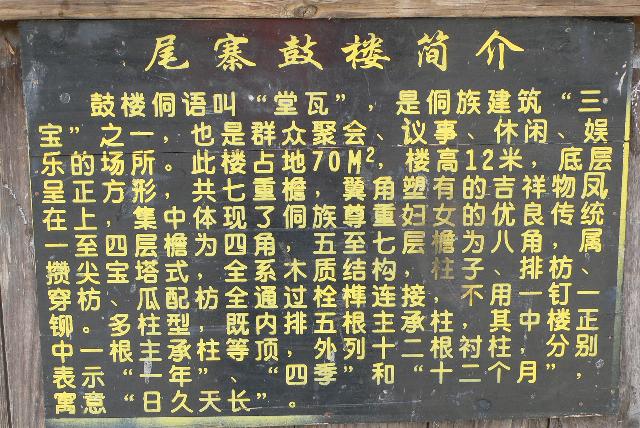 尾寨鼓楼简介
鼓楼侗语叫“堂瓦”，是侗族建筑“三
宝”之一，也是群众聚会、议事、休闲、娱
乐的场所。此楼占地70M²，楼高12米，底层
呈正方形，共七重檐，翼角塑有的吉祥物凤
在上，集中体现了侗族尊重妇女的优良传统
一至四层檐为四角，五至七层檐为八角，属
攒尖宝塔式，全系木质结构，柱子、排枋、
穿枋、瓜配枋全通过栓榫连接，不用一钉一
铆。多柱型，既内排五根主承柱，其中楼正
中一根主承柱等顶，外列十二根衬柱，分别
表示“一年”、“四季”和“十二个月”，
寓意“日久天长”。